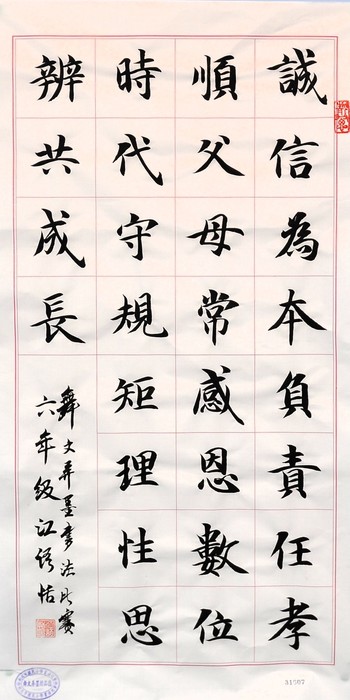 誠信為本負責任孝
順父母常感恩數位
時代守規矩理性思
辨共成長
舞文弄墨書法比賽
六年級江語恬
31567